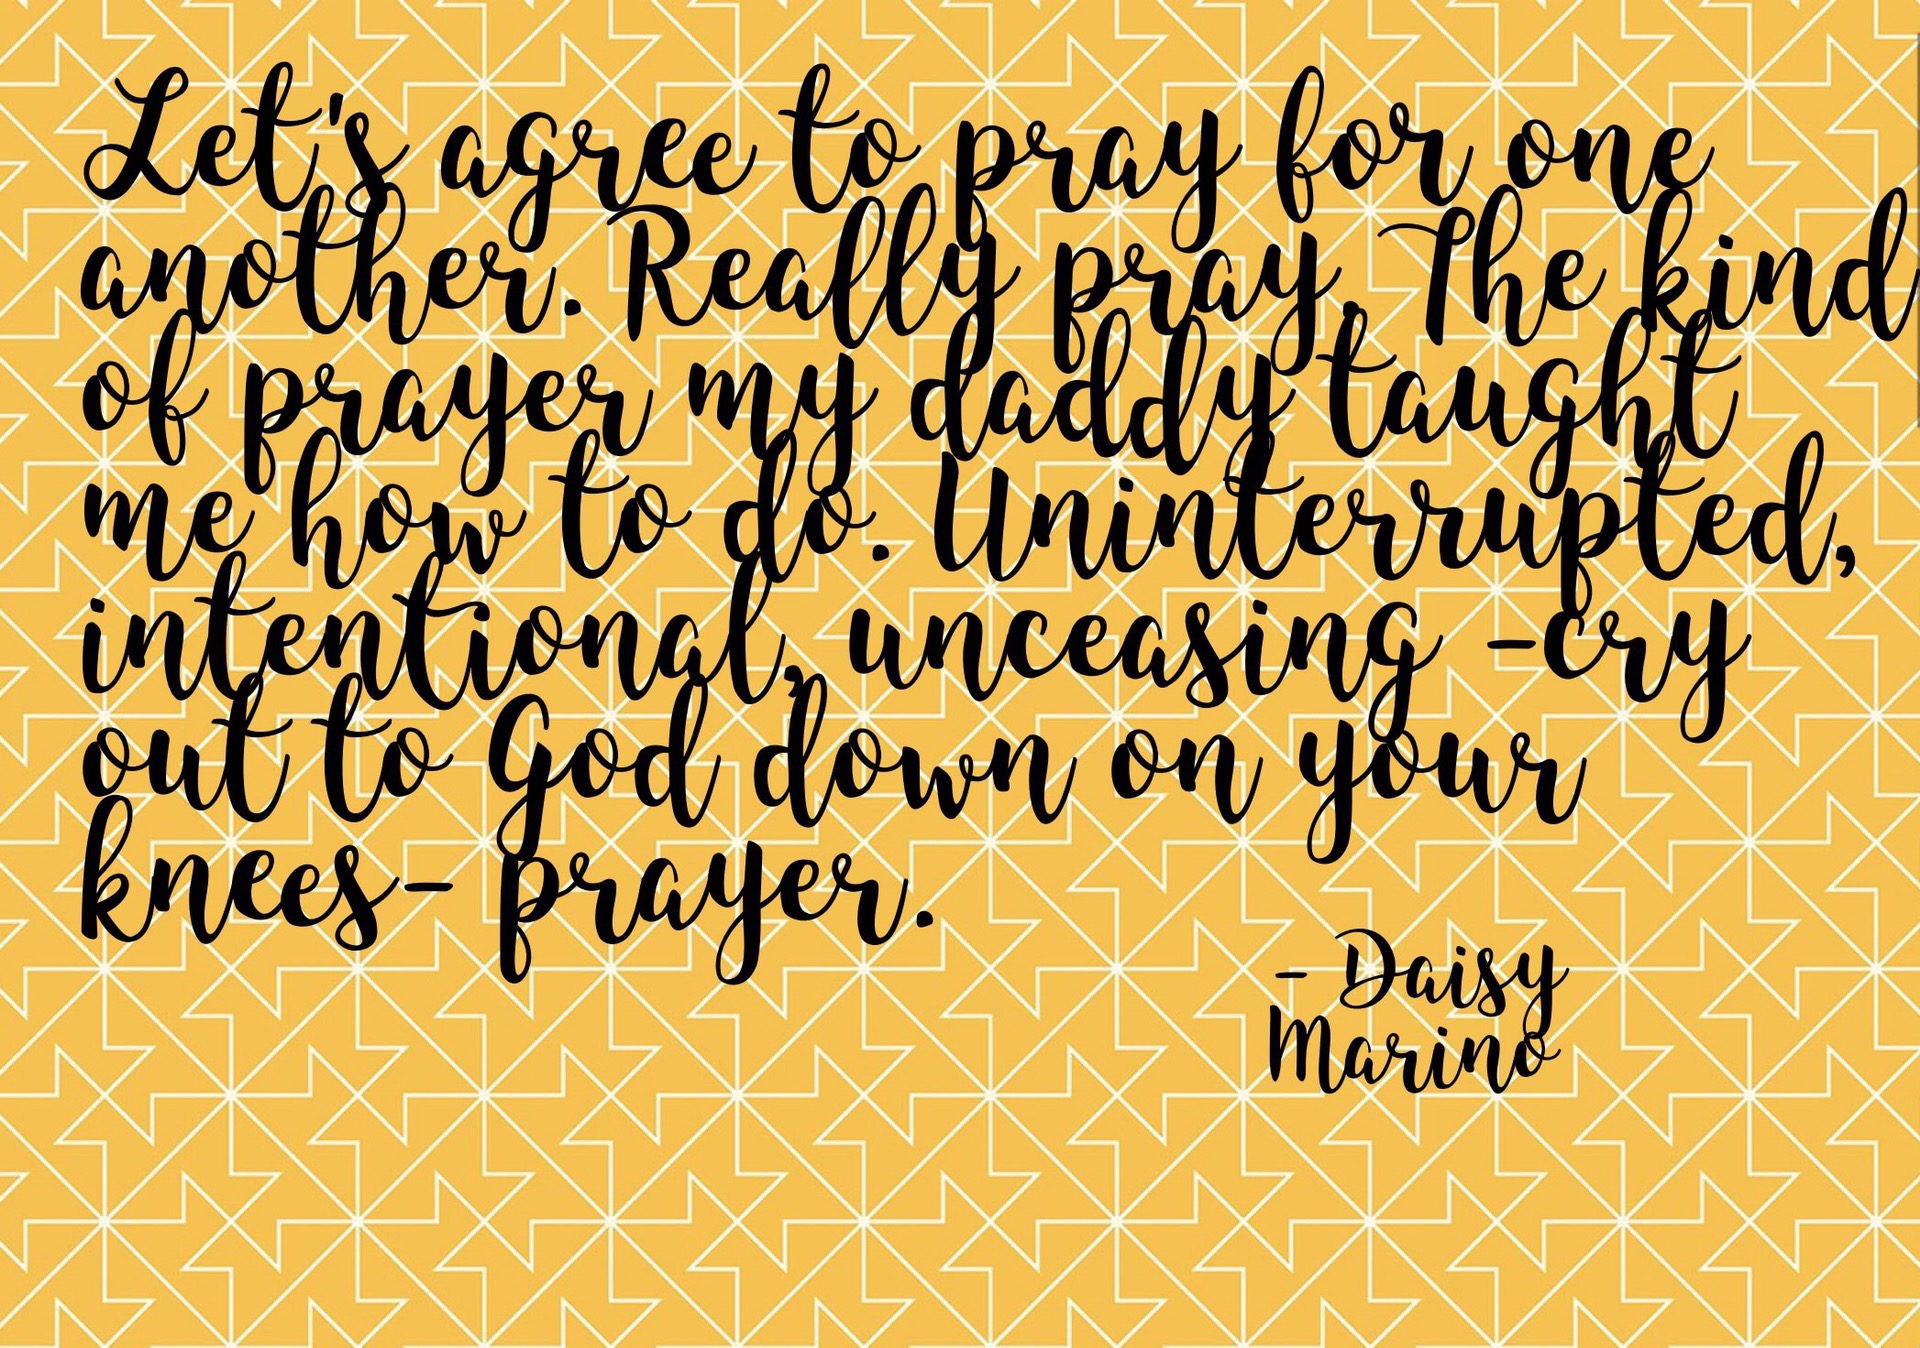 Let's agree to pray for one
another. Really pray. The kind
of prayer my daddy taught
me how to do. Uninterrupted,
intentional, unceasing -cry
out to God down on your
knees- prayer.
- Daisy
Marino